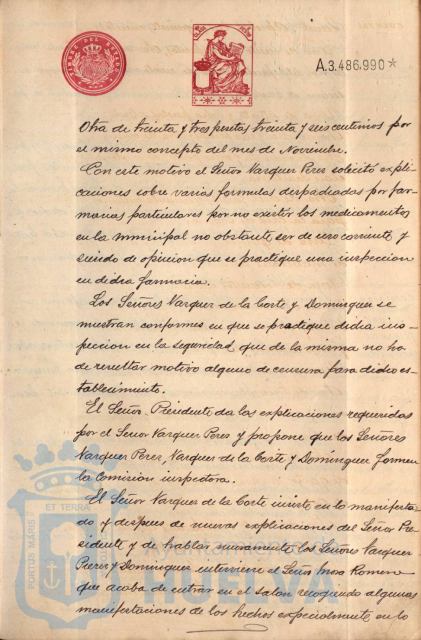 TIMBRE DEL ESTADO
A.3.486.990*
Otra de treinta y tres pesetas treinta y seis centimos por
el mismo concepto del mes de Noviembre.
Con este motivo el Señor Vazquez Perez solicitó expli-
caciones sobre varias formulas despachadas por far-
macias particulares por no existir los medicamentos
en la municipal no obstante ser de uso corriente y
siendo de opinion que se practique una inspeccion
en dicha farmacia.
Los Señores Vazquez de la Corte y Dominguez se
muestran conformes en que se practique dicha ins-
peccion en la seguridad que de la misma no ha
de resultar motivo alguno de censura para dicho es-
tablecimiento.
El Señor Presidente da las explicaciones requeridas
por el Señor Vazquez Perez y propone que los Señores
Vazquez Perez, Vazquez de la Corte y Dominguez formen
la Comisión inspectora.
El Señor Vazquez de la Corte insiste en lo manifesta-
do y despues de nuevas explicaciones del Señor Pre-
sidente y de hablar nuevamente los Señores Vazquez
Perez y Dominguez interviene el Señor Mora Romero
que acaba de entrar en el Salon recogiendo algunas
manifestaciones de los hechos especialmente en lo
PORTUS MARIS ET TERRAE
Ayuntamiento de
HUELVA